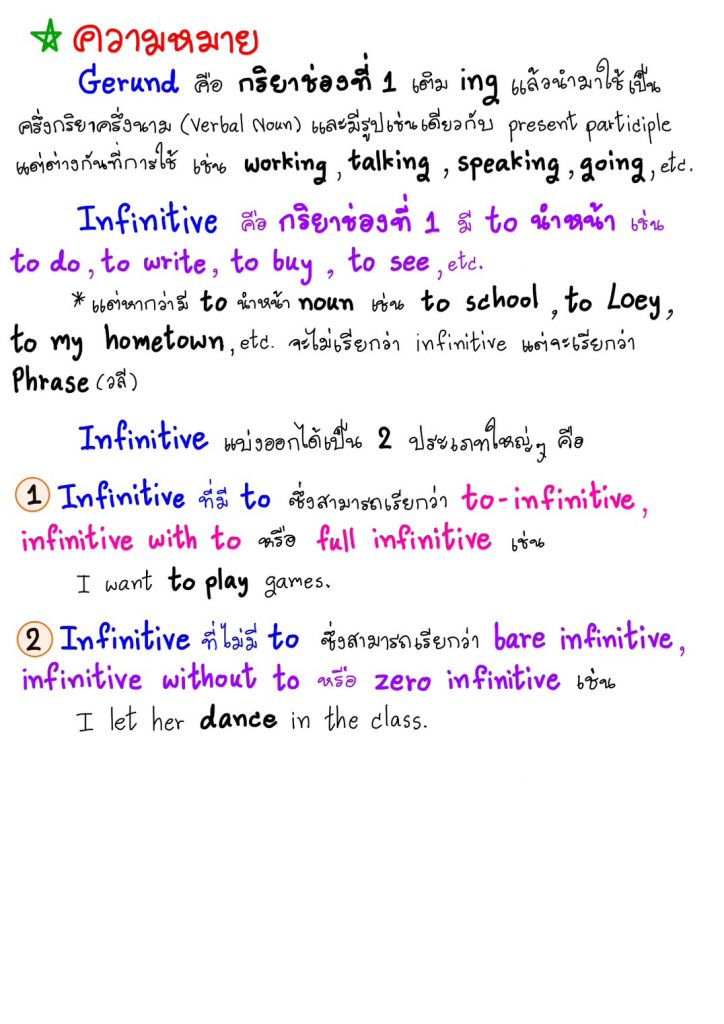 ความหมาย
Gerund คือ กริยาช่องที่ 1 เติม ing แล้วนำมาใช้เป็น
ครึ่งกริยาครึ่งนาม (Verbal Noun) และมีรูปเช่นเดียวกับ present participle
แต่ต่างกันที่การใช้ เช่น working, talking, speaking, going, etc.
Infinitive คือ กริยาช่องที่ 1 มี to นำหน้า เช่น
to do, to write, to buy, to see, etc.
*แต่หากว่ามี to นำหน้า noun เช่น to school, to Loey,
to my hometown, etc. จะไม่เรียกว่า infinitive แต่จะเรียกว่า
Phrase (วลี)
Infinitive แบ่งออกได้เป็น 2 ประเภทใหญ่ๆ คือ
1 Infinitive ที่มี to ซึ่งสามารถเรียกว่า to-infinitive,
infinitive with to หรือ full infinitive เช่น
I want to play games.
2 Infinitive ที่ไม่มี to ซึ่งสามารถเรียกว่า bare infinitive,
infinitive without to หรือ zero infinitive เช่น
I let her dance in the class.